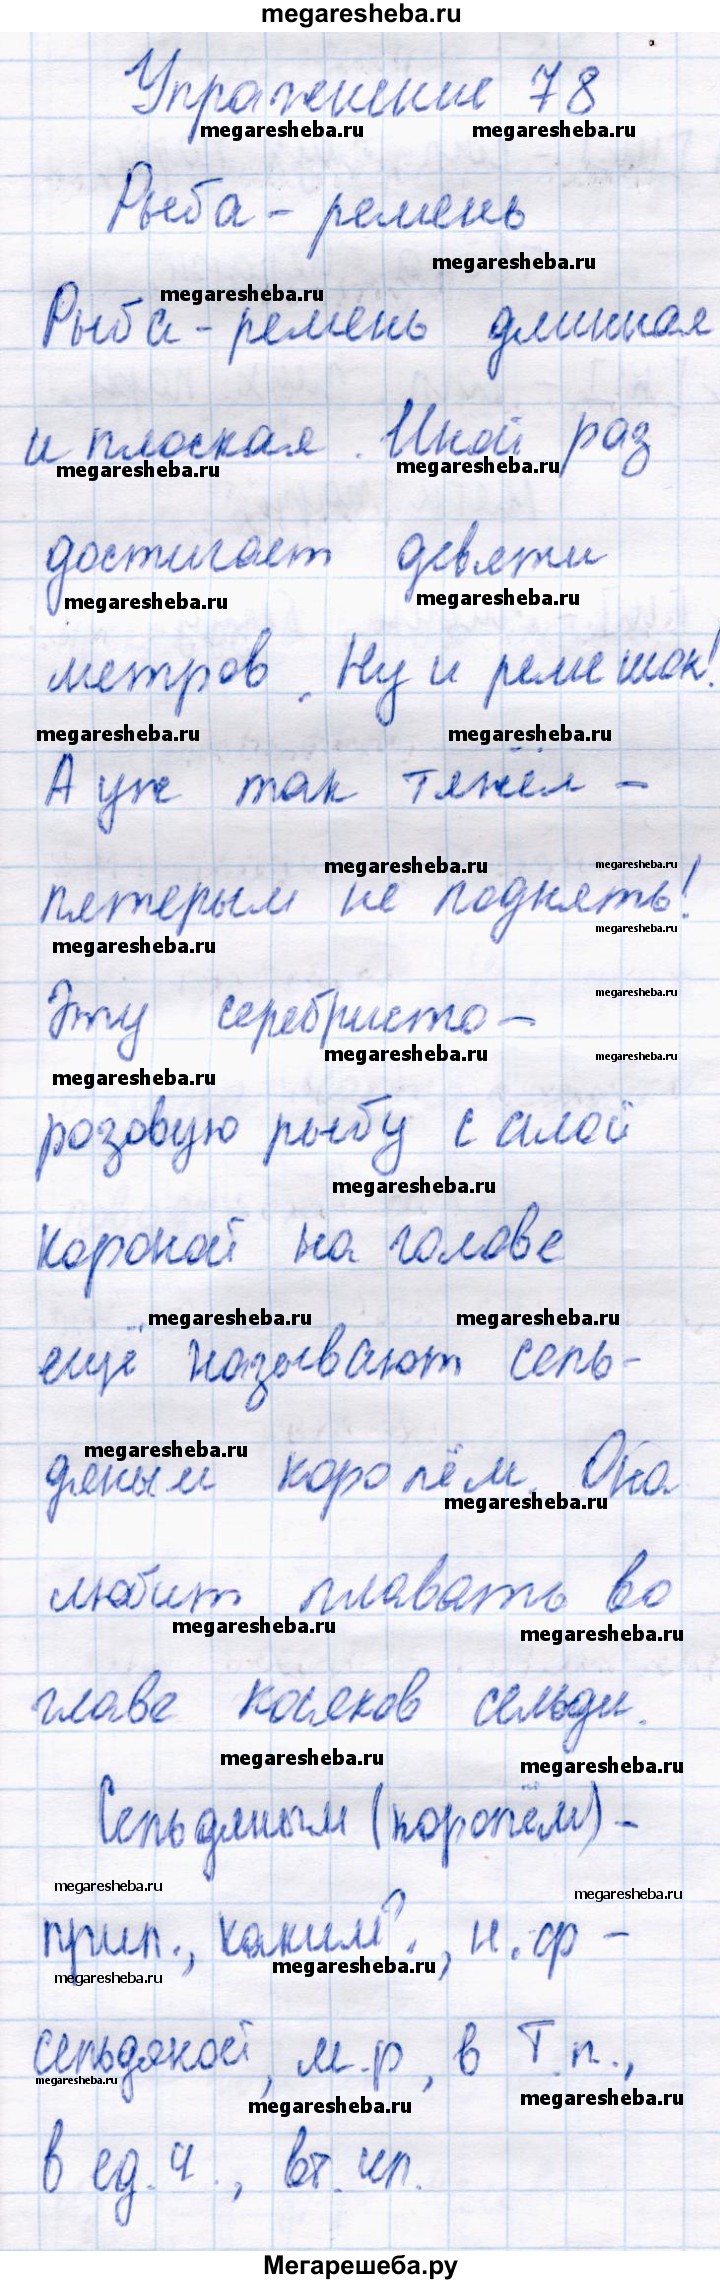 megaresheba.ru
Упражнение 78
megaresheba.ru megaresheba.ru
Рыба - ремень
megaresheba.ru
megaresheba.ru
Рыба - ремень длинная
и плоская. Иной раз
megaresheba.ru megaresheba.ru
достигает девяти
megaresheba.ru megaresheba.ru
метров. Ну и ремешок!
megaresheba.ru megaresheba.ru
А уж так тяжёл -
megaresheba.ru megaresheba.ru
пятерым не поднять!
megaresheba.ru megaresheba.ru
Эту серебристо -
megaresheba.ru
megaresheba.ru megaresheba.ru
megaresheba.ru
розовую рыбу с алой
megaresheba.ru
короной на голове
megaresheba.ru megaresheba.ru
ещё называют сель-
megaresheba.ru
дяным королём. Она
megaresheba.ru
любит плавать во
megaresheba.ru megaresheba.ru
главе косяков сельди.
megaresheba.ru megaresheba.ru
Сельдяным (королём) -
megaresheba.ru megaresheba.ru
прил., каким?, н.ф -
megaresheba.ru megaresheba.ru
сельдяной, м.р, в Т.п.,
megaresheba.ru megaresheba.ru megaresheba.ru
в ед.ч., вт.чл.
Мегарешеба.ру